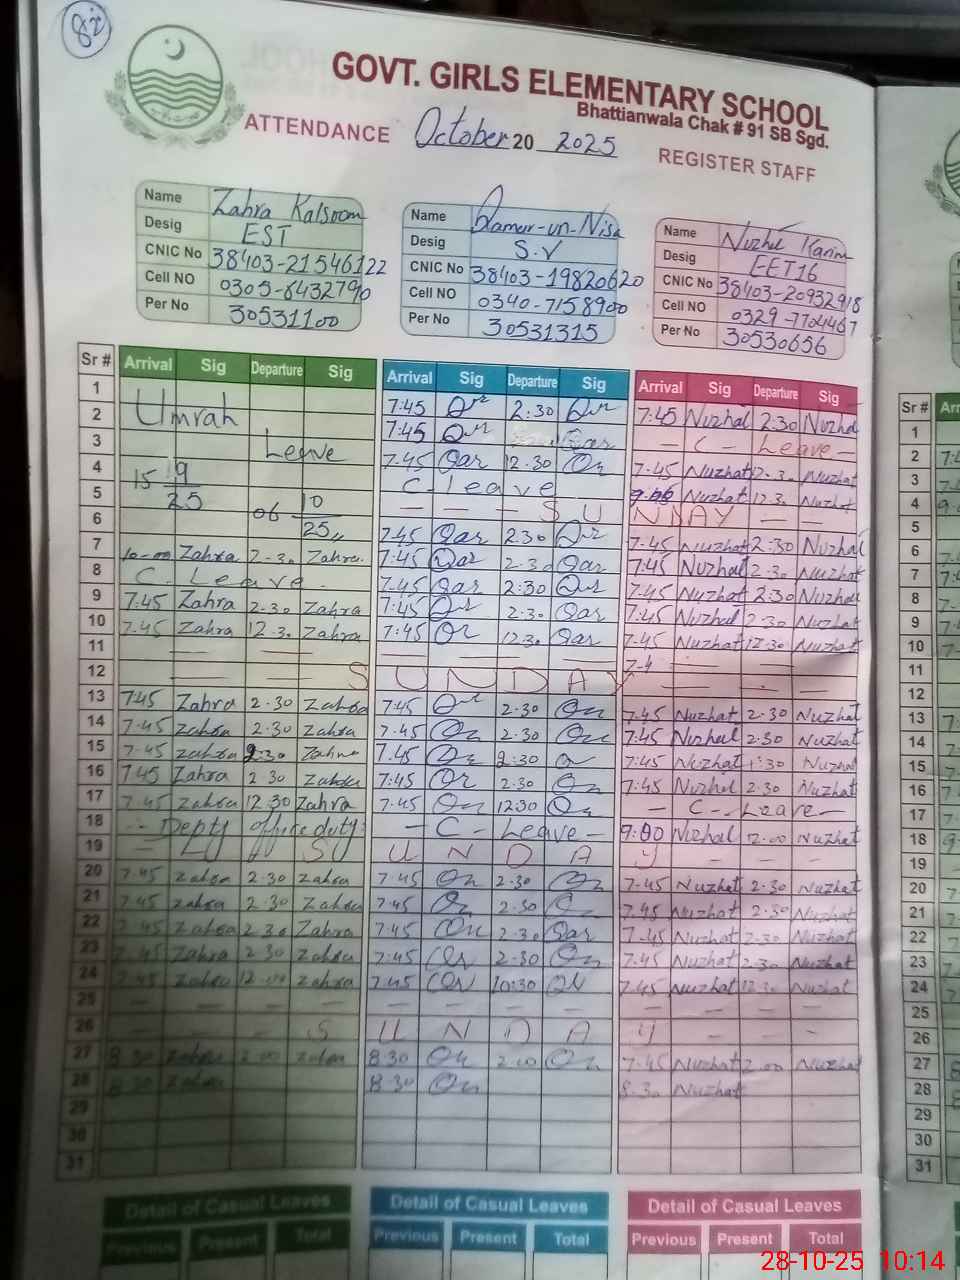 82
GOVT. GIRLS ELEMENTARY SCHOOL
Bhattianwala Chak # 91 SB Sgd.
ATTENDANCE October 20 2025
REGISTER STAFF
Name Zahra Kalsoom
Desig EST
CNIC No 38403-21546122
Cell NO 0305-6432790
Per No 30531100
Name Qamar-un-Nisa
Desig S.V
CNIC No 38403-19820620
Cell NO 0340-7158900
Per No 30531315
Name Nuzhat Karim
Desig EET16
CNIC No 38403-20932918
Cell NO 0329-7704467
Per No 30530656
Sr # Arrival Sig Departure Sig Arrival Sig Departure Sig Arrival Sig Departure Sig
1 Umrah 7:45 2:30 7:45 Nuzhat 2:30 Nuzhat
2 7:45 Qar - C - Leave -
3 Leave 7:45 Qar 12:30 7:45 Nuzhat 12:30 Nuzhat
4 15 9/25 C - Leave 9:00 Nuzhat 12:30 Nuzhat
5 06 10/25 SUNDAY
6 7:45 Qar 2:30 7:45 Nuzhat 2:30 Nuzhat
7 10-00 Zahra 2-30 Zahra 7:45 Qar 2:30 Qar 7:45 Nuzhat 2:30 Nuzhat
8 C. Leave 7:45 Qar 2:30 7:45 Nuzhat 2:30 Nuzhat
9 7:45 Zahra 2-30 Zahra 7:45 2:30 Qar 7:45 Nuzhat 2:30 Nuzhat
10 7.45 Zahra 12.30 Zahra 7:45 12:30 Qar 7:45 Nuzhat 12:30 Nuzhat
11 7-4
12 SUNDAY
13 7:45 Zahra 2-30 Zahra 7:45 2:30 7:45 Nuzhat 2:30 Nuzhat
14 7-45 Zahra 2-30 Zahra 7.45 2:30 7:45 Nuzhat 2:30 Nuzhat
15 7-45 Zahra 2:30 Zahra 7.45 2:30 7:45 Nuzhat 1:30 Nuzhat
16 7:45 Zahra 2 30 Zahra 7:45 2:30 7:45 Nuzhat 2:30 Nuzhat
17 7.45 Zahra 12:30 Zahra 7:45 1230 - C - Leave -
18 Depty office duty - C - Leave - 9:00 Nuzhat 12:00 Nuzhat
19 SUNDAY
20 7.45 Zahra 2-30 Zahra 7:45 2-30 7-45 Nuzhat 2-30 Nuzhat
21 7.45 Zahra 2-30 Zahra 7:45 2:30 7.45 Nuzhat 2-30 Nuzhat
22 7-45 Zahra 2 30 Zahra 7:45 2-30 Qar 7.45 Nuzhat 2-30 Nuzhat
23 7-45 Zahra 2 30 Zahra 7:45 2-30 7.45 Nuzhat 2.30 Nuzhat
24 7-45 Zahra Zahra 7:45 10:30 7.45 Nuzhat 12.30 Nuzhat
25
26 SUNDAY
27 8 30 Zahra 2 00 Zahra 8.30 2:00 7-45 Nuzhat 2.00 Nuzhat
28 8 30 Zahra 8:30 8.30 Nuzhat
29
30
31
Detail of Casual Leaves Detail of Casual Leaves Detail of Casual Leaves
Previous Present Total Previous Present Total Previous Present Total
Sr #
1
2
3
4
5
6
7
8
9
10
11
12
13
14
15
16
17
18
19
20
21
22
23
24
25
26
27
28
29
30
31
28-10-25 10:14